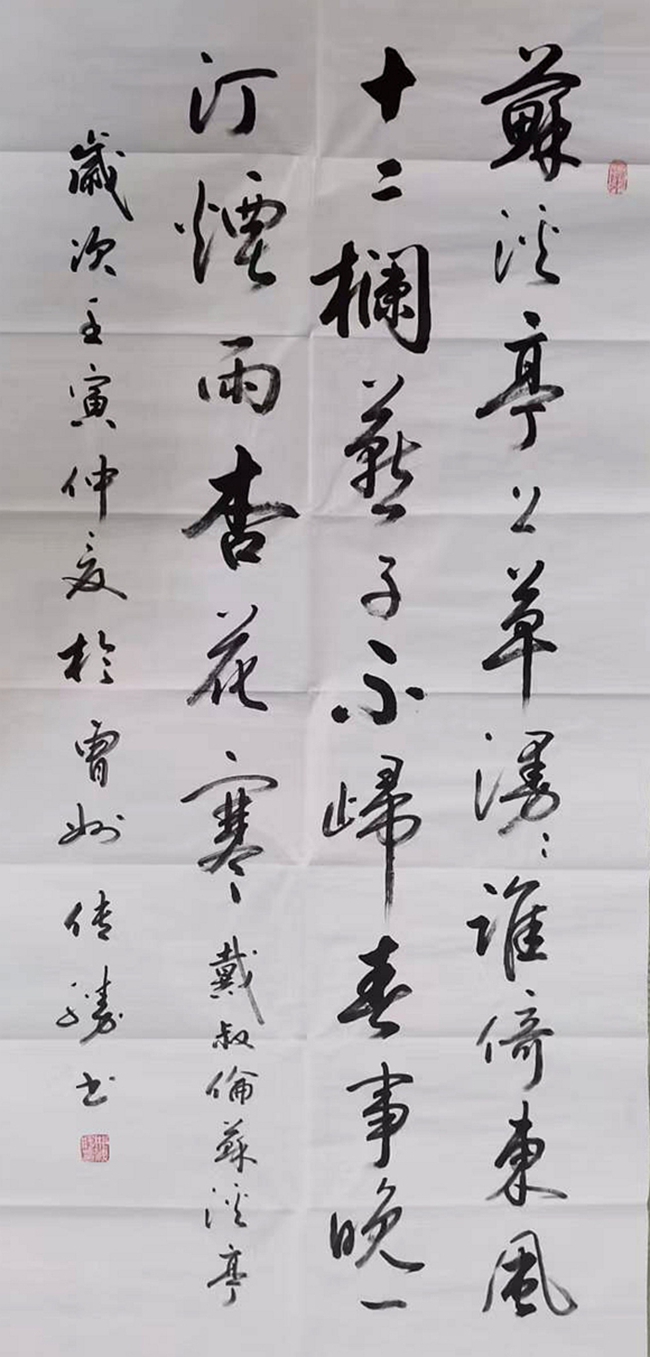 蘇溪亭上草漫漫誰倚東風
十二欄燕子不歸春事晚一
汀煙雨杏花寒 戴叔倫蘇溪亭
歲次壬寅仲夏於曹州傳勝書